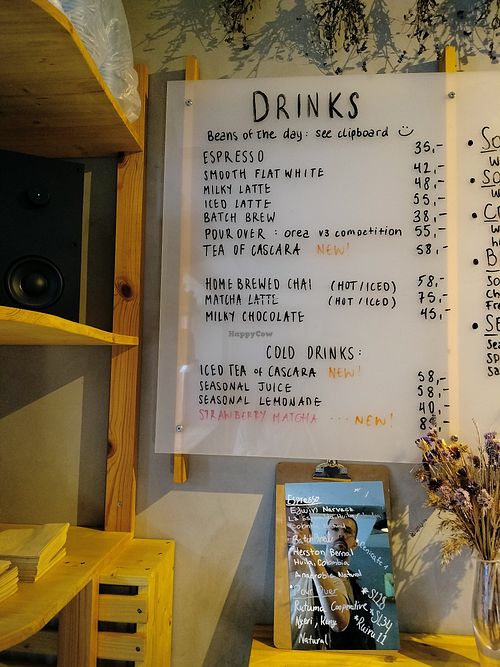 DRINKS
Beans of the day: see clipboard
ESPRESSO 35,-
SMOOTH FLAT WHITE 42,-
MILKY LATTE 48,-
ICED LATTE 55,-
BATCH BREW 38,-
POUR OVER : orea v3 competition 55,-
TEA OF CASCARA NEW! 58,-
HOME BREWED CHAI (HOT/ICED) 58,-
MATCHA LATTE (HOT/ICED) 75,-
MILKY CHOCOLATE 45,-
HappyCow
COLD DRINKS:
ICED TEA of CASCARA NEW! 58,-
SEASONAL JUICE 58,-
SEASONAL LEMONADE 40,-
STRAWBERRY MATCHA ... NEW!
Espresso
Edwin Narvaez
Colombia Natural
Batch Brew
Herston Bernal
Huila, Colombia
Anaerobic Natural
Pour Over
Rutuma Cooperative
Nyeri, Kenya
Natural
#SL28
#SL34
#Ruiru 11